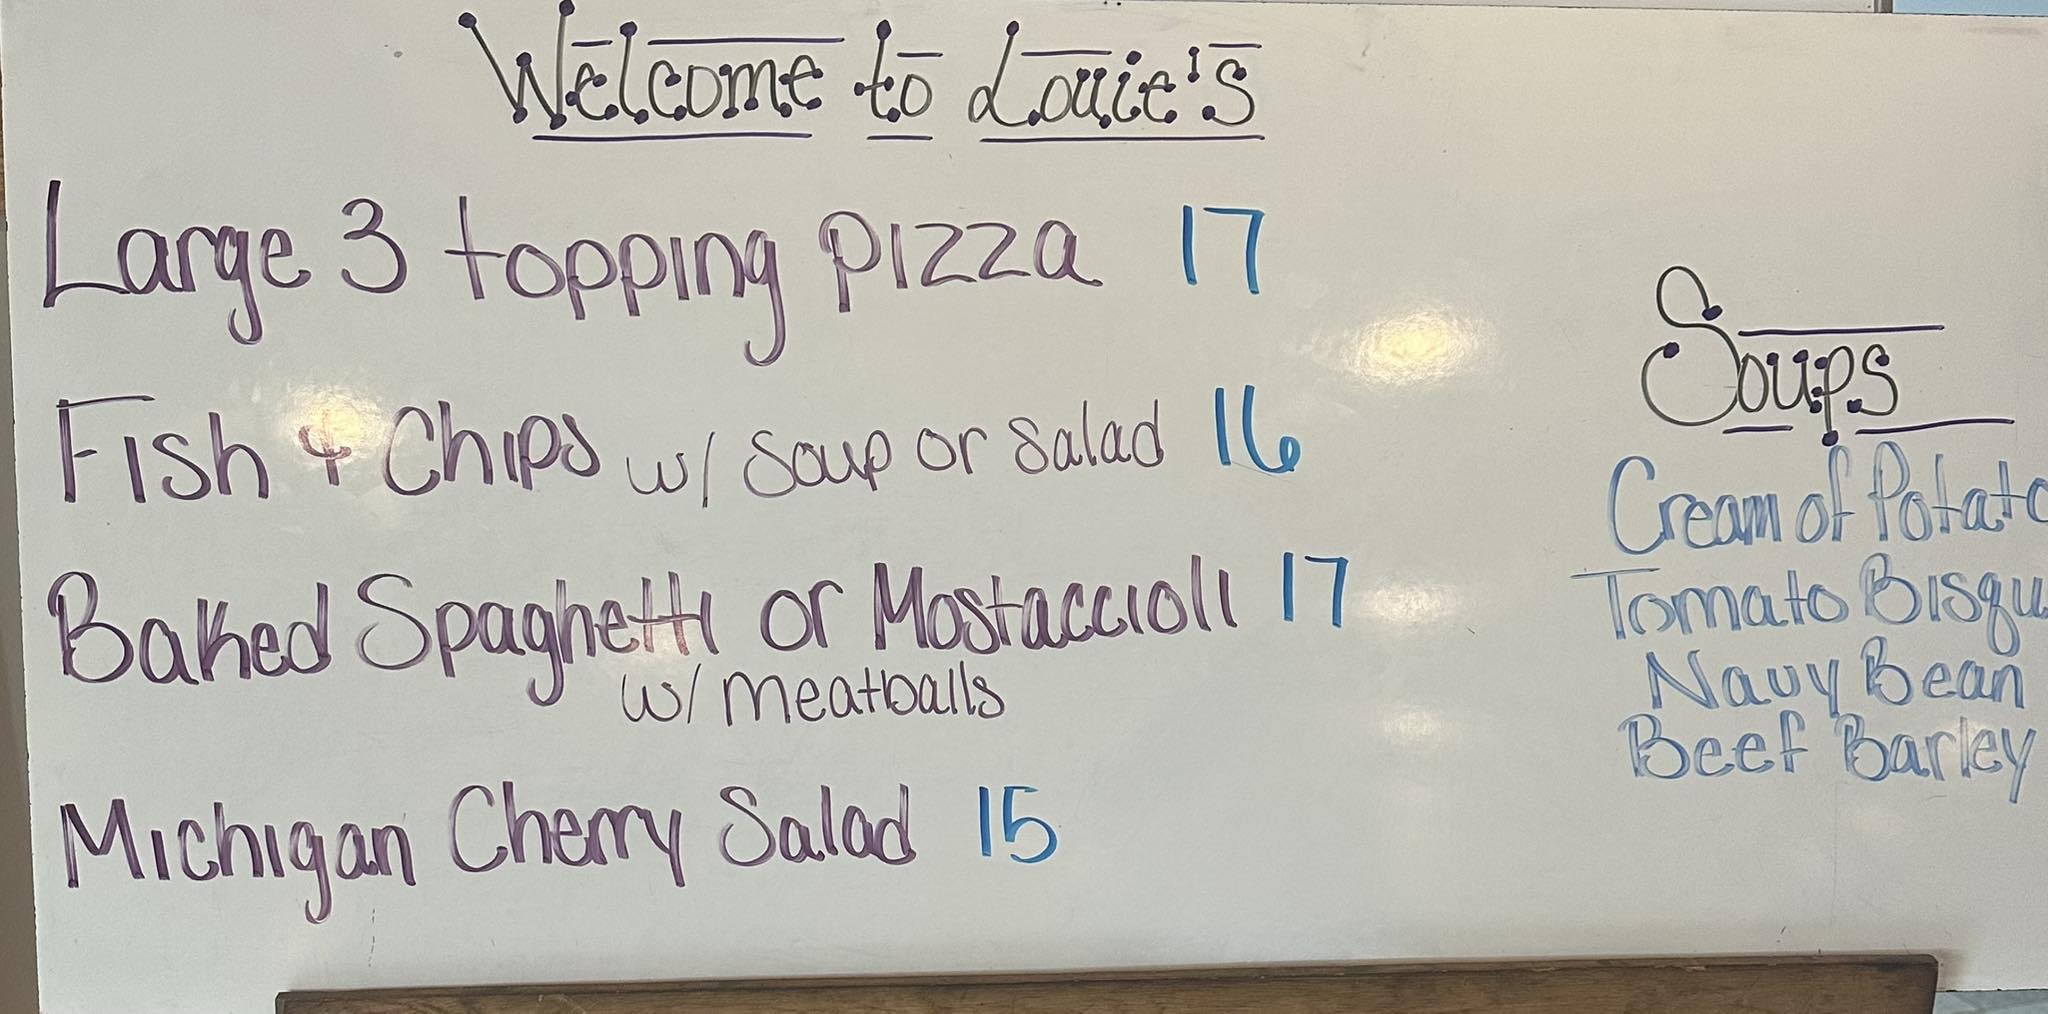 Welcome to Louie's
Large 3 topping pizza 17
Fish & Chips w/ soup or salad 16
Baked Spaghetti or Mostaccioli 17
w/ meatballs
Michigan Cherry Salad 15
Soups
Cream of Potato
Tomato Bisqu
Navy Bean
Beef Barley